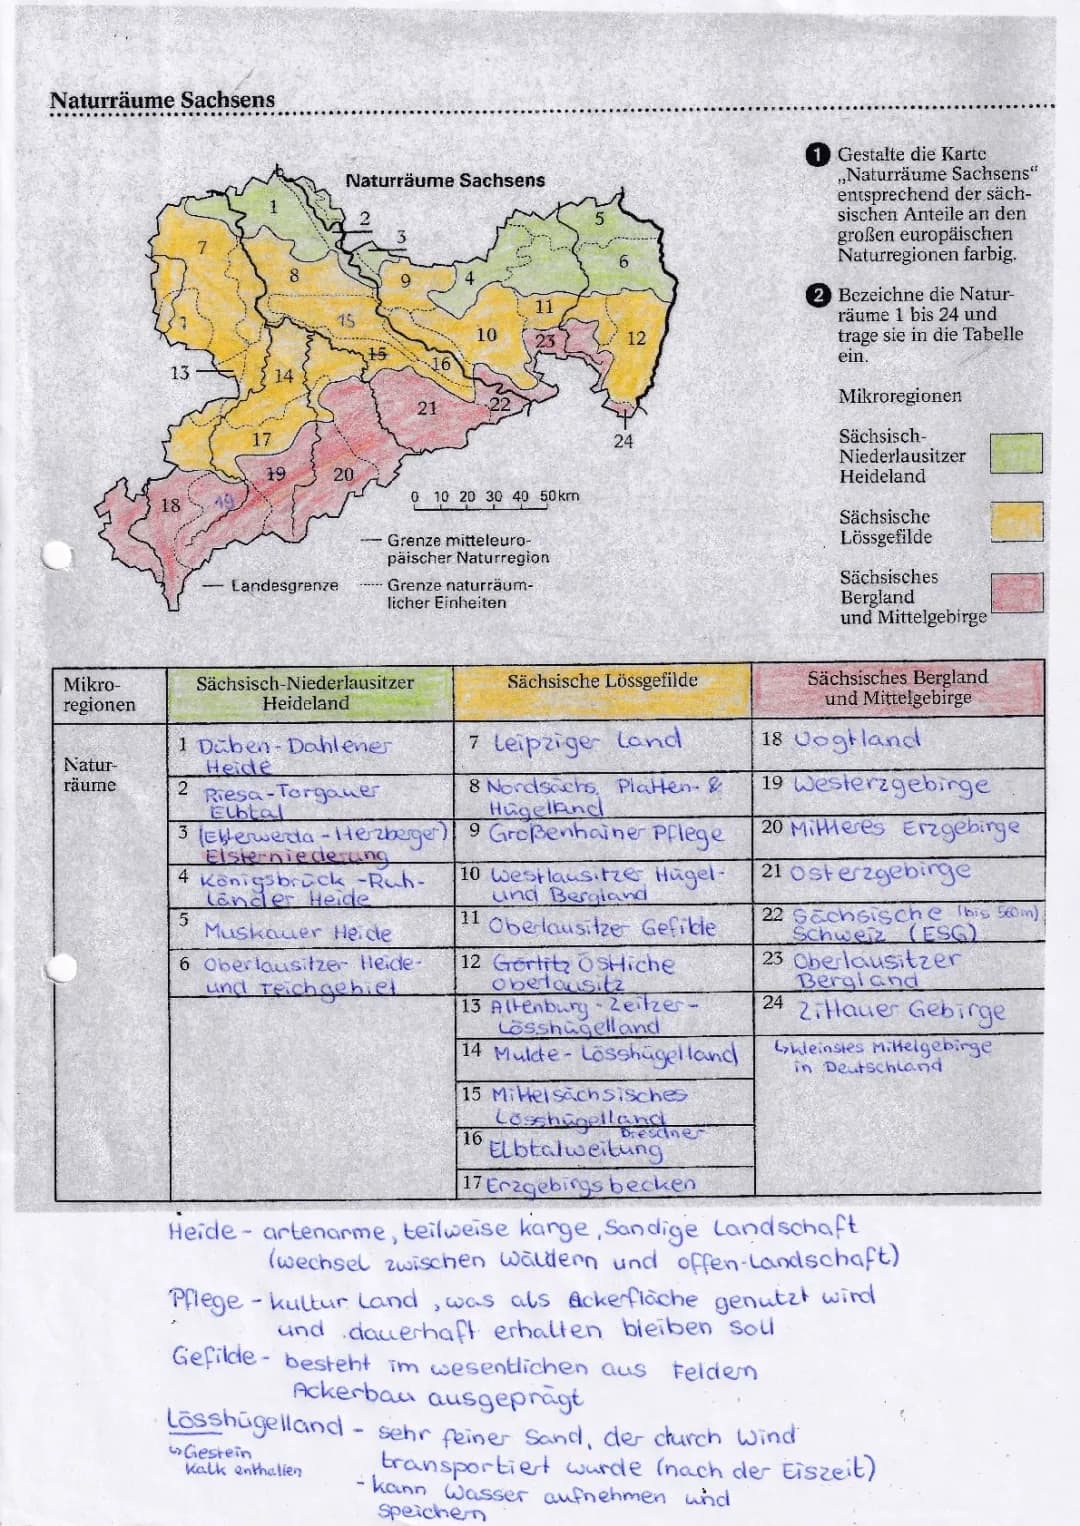 Naturräume Sachsens
Naturräume Sachsens
1 Gestalte die Karte
„Naturräume Sachsens“
entsprechend der säch-
sischen Anteile an den
großen europäischen
Naturregionen farbig.
2 Bezeichne die Natur-
räume 1 bis 24 und
trage sie in die Tabelle
ein.
Mikroregionen
Sächsisch-
Niederlausitzer
Heideland
Sächsische
Lössgefilde
Sächsisches
Bergland
und Mittelgebirge
1
2
3
4
5
6
7
8
9
10
11
12
13
14
15
15
16
17
18
19
19
20
21
22
23
24
0 10 20 30 40 50km
Grenze mitteleuro-
päischer Naturregion
Landesgrenze
Grenze naturräum-
licher Einheiten
Mikro-
regionen
Sächsisch-Niederlausitzer
Heideland
Sächsische Lössgefilde
Sächsisches Bergland
und Mittelgebirge
Natur-
räume
1 Düben-Dahlener
Heide
2 Riesa-Torgauer
Elbtal
3 (Elsterwerda-Herzberger)
Elsterniederung
4 Königsbrück-Ruh-
länder Heide
5 Muskauer Heide
6 Oberlausitzer Heide-
und Teichgebiet
7 Leipziger Land
8 Nordsächs. Platten- &
Hügelland
9 Großenhainer Pflege
10 Westlausitzer Hügel-
und Bergland
11 Oberlausitzer Gefilde
12 Görlitz Östliche
Oberlausitz
13 Altenburg-Zeitzer-
Lösshügelland
14 Mulde-Lösshügelland
15 Mittelsächsisches
Lösshügelland
16 Dresdner
Elbtalweitung
17 Erzgebirgsbecken
18 Vogtland
19 Westerzgebirge
20 Mittleres Erzgebirge
21 Osterzgebirge
22 Sächsische (bis 560m)
Schweiz (ESG)
23 Oberlausitzer
Bergland
24 Zittauer Gebirge
↳kleinstes Mittelgebirge
in Deutschland
Heide - artenarme, teilweise karge, Sandige Landschaft
(wechsel zwischen Wäldern und offen-Landschaft)
Pflege - kultur Land, was als Ackerfläche genutzt wird
und dauerhaft erhalten bleiben soll
Gefilde - besteht im wesentlichen aus Feldern
Ackerbau ausgeprägt
Lösshügelland - sehr feiner Sand, der durch Wind
↳Gestein
transportiert wurde (nach der Eiszeit)
Kalk enthalten
- kann Wasser aufnehmen und
speichern